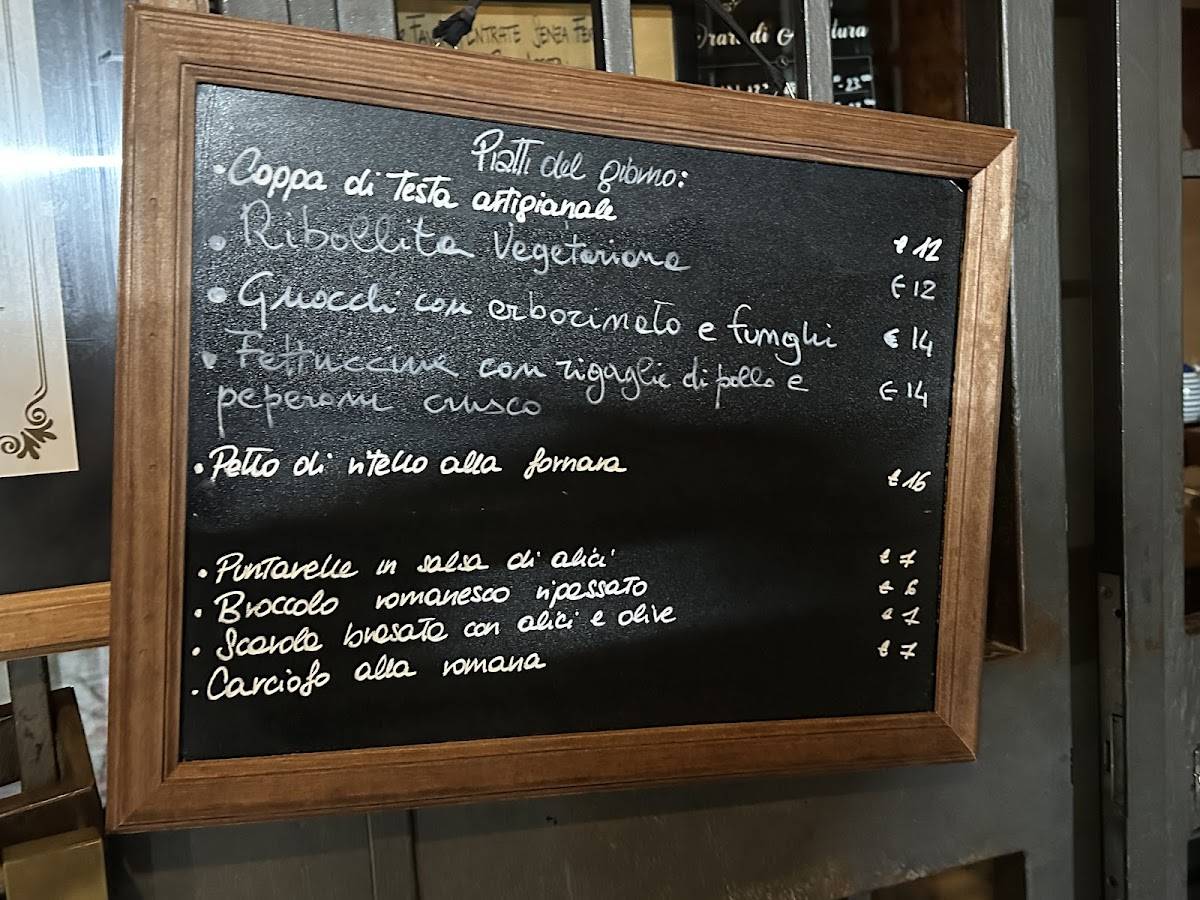 TAV ENTRATE SENZA
Orari di
Piatti del giorno:
• Coppa di Testa artigianale € 12
• Ribollita Vegetariana € 12
• Gnocchi con erborinato e funghi € 14
• Fettuccine con rigaglie di pollo e € 14
peperoni crusco
• Petto di vitello alla fornara € 16
• Puntarelle in salsa di alici € 7
• Broccolo romanesco ripassato € 6
• Scarola brasata con alici e olive € 7
• Carciofo alla romana € 7